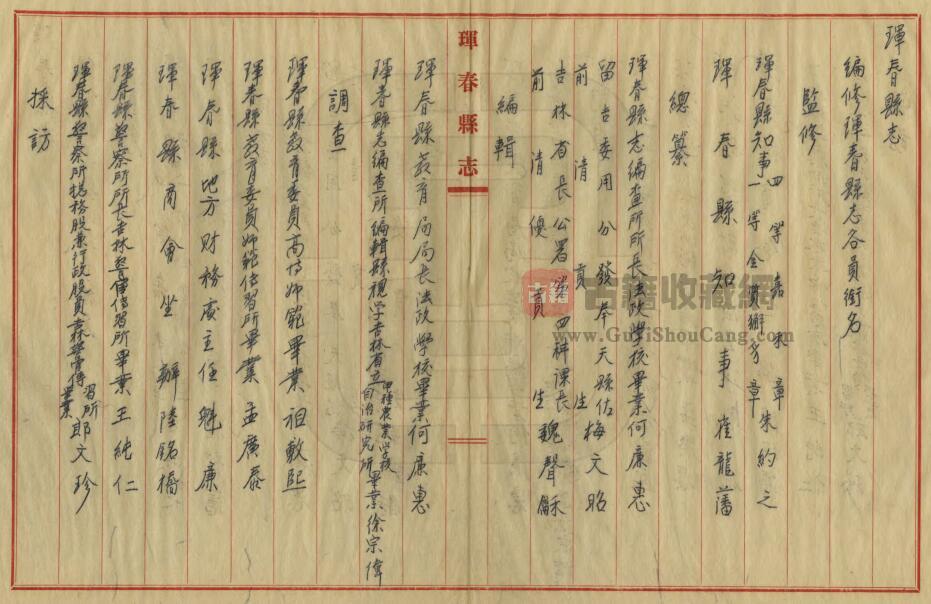 琿春縣志
編修琿春縣志各員銜名
監修
琿春縣知事四等嘉禾章一等金質獬豸章朱約之
琿春縣知事崔龍藩
總纂
琿春縣志編查所所長法政學校畢業何廉惠
前清貢生留吉委用分發奉天縣佐梅文昭
前清優貢生吉林省長公署第四科課長魏聲龢
編輯
琿春縣志
琿春縣教育局局長法政學校畢業何廉惠
琿春縣志編查所編輯縣視學吉林省立甲種農業學校自治研究所畢業徐宗偉
調查
琿春縣教育委員高等師範畢業祖毅熙
琿春縣教育委員師範傳習所畢業孟廣泰
琿春縣地方財務處主任魁廉
琿春縣商會坐辦陸銘橋
琿春縣警察所所長吉林警傳習所畢業王純仁
琿春縣警察所股員吉林警傳習所畢業郎文珍
採訪
古籍
古籍收藏網
www.GuJiShouCang.com